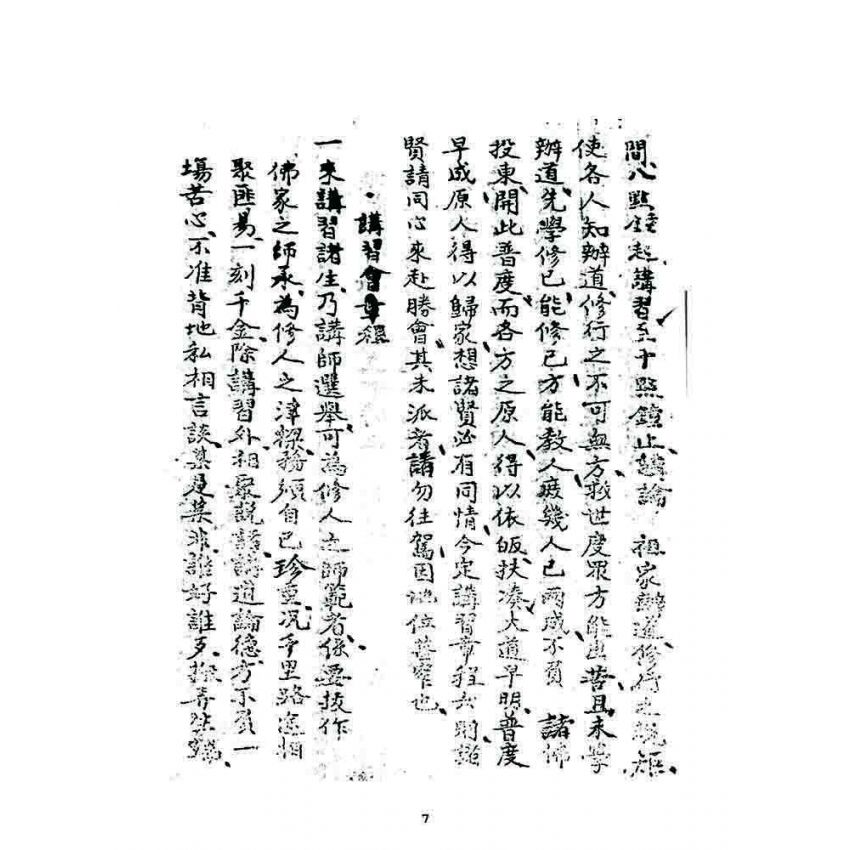 間八點鐘起講習至十點鐘止講論 祖家辦道修行之規矩
使各人知辦道修行之不可無方救世度眾方能出苦且未學
辦道先學修己能修己方能教人庶幾人己兩成不負 諸佛
投東開此普度而各方之原人得以依皈扶凑大道早照普度
早成原人得以歸家想諸賢必有同情今定講習章程 則諸
賢請同心來赴勝會其未派者請勿往駕因地位甚窄也
講習會章程
一來講習諸生乃講師選舉可為修人之師範者係要技作
佛家之師承為修人之津樑務須自己珍重况千里路途相
聚匪易一刻千金除講習外相聚説話講道論德方不負一
塲苦心不准背地私相言談某是某非誰好誰歹 弄是
7